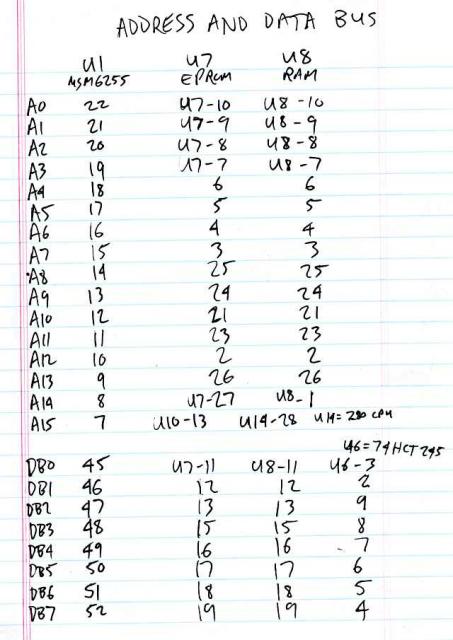 ADDRESS AND DATA BUS
U1 U7 U8
MSM6255 EPROM RAM
A0 22 U7-10 U8-10
A1 21 U7-9 U8-9
A2 20 U7-8 U8-8
A3 19 U7-7 U8-7
A4 18 6 6
A5 17 5 5
A6 16 4 4
A7 15 3 3
A8 14 25 25
A9 13 24 24
A10 12 21 21
A11 11 23 23
A12 10 2 2
A13 9 26 26
A14 8 U7-27 U8-1
A15 7 U10-13 U14-28 U14=Z80 CPU
U6=74HCT245
DB0 45 U7-11 U8-11 U6-3
DB1 46 12 12 2
DB2 47 13 13 9
DB3 48 15 15 8
DB4 49 16 16 7
DB5 50 17 17 6
DB6 51 18 18 5
DB7 52 19 19 4